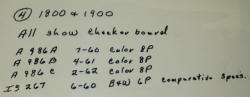 ④ 1800 & 1900
All show checker board
A 986A 7-60 Color 8P
A 986B 4-61 Color 8P
A 986 C 2-62 Color 8P
IS 267 6-60 B&W 6P comparative specs.